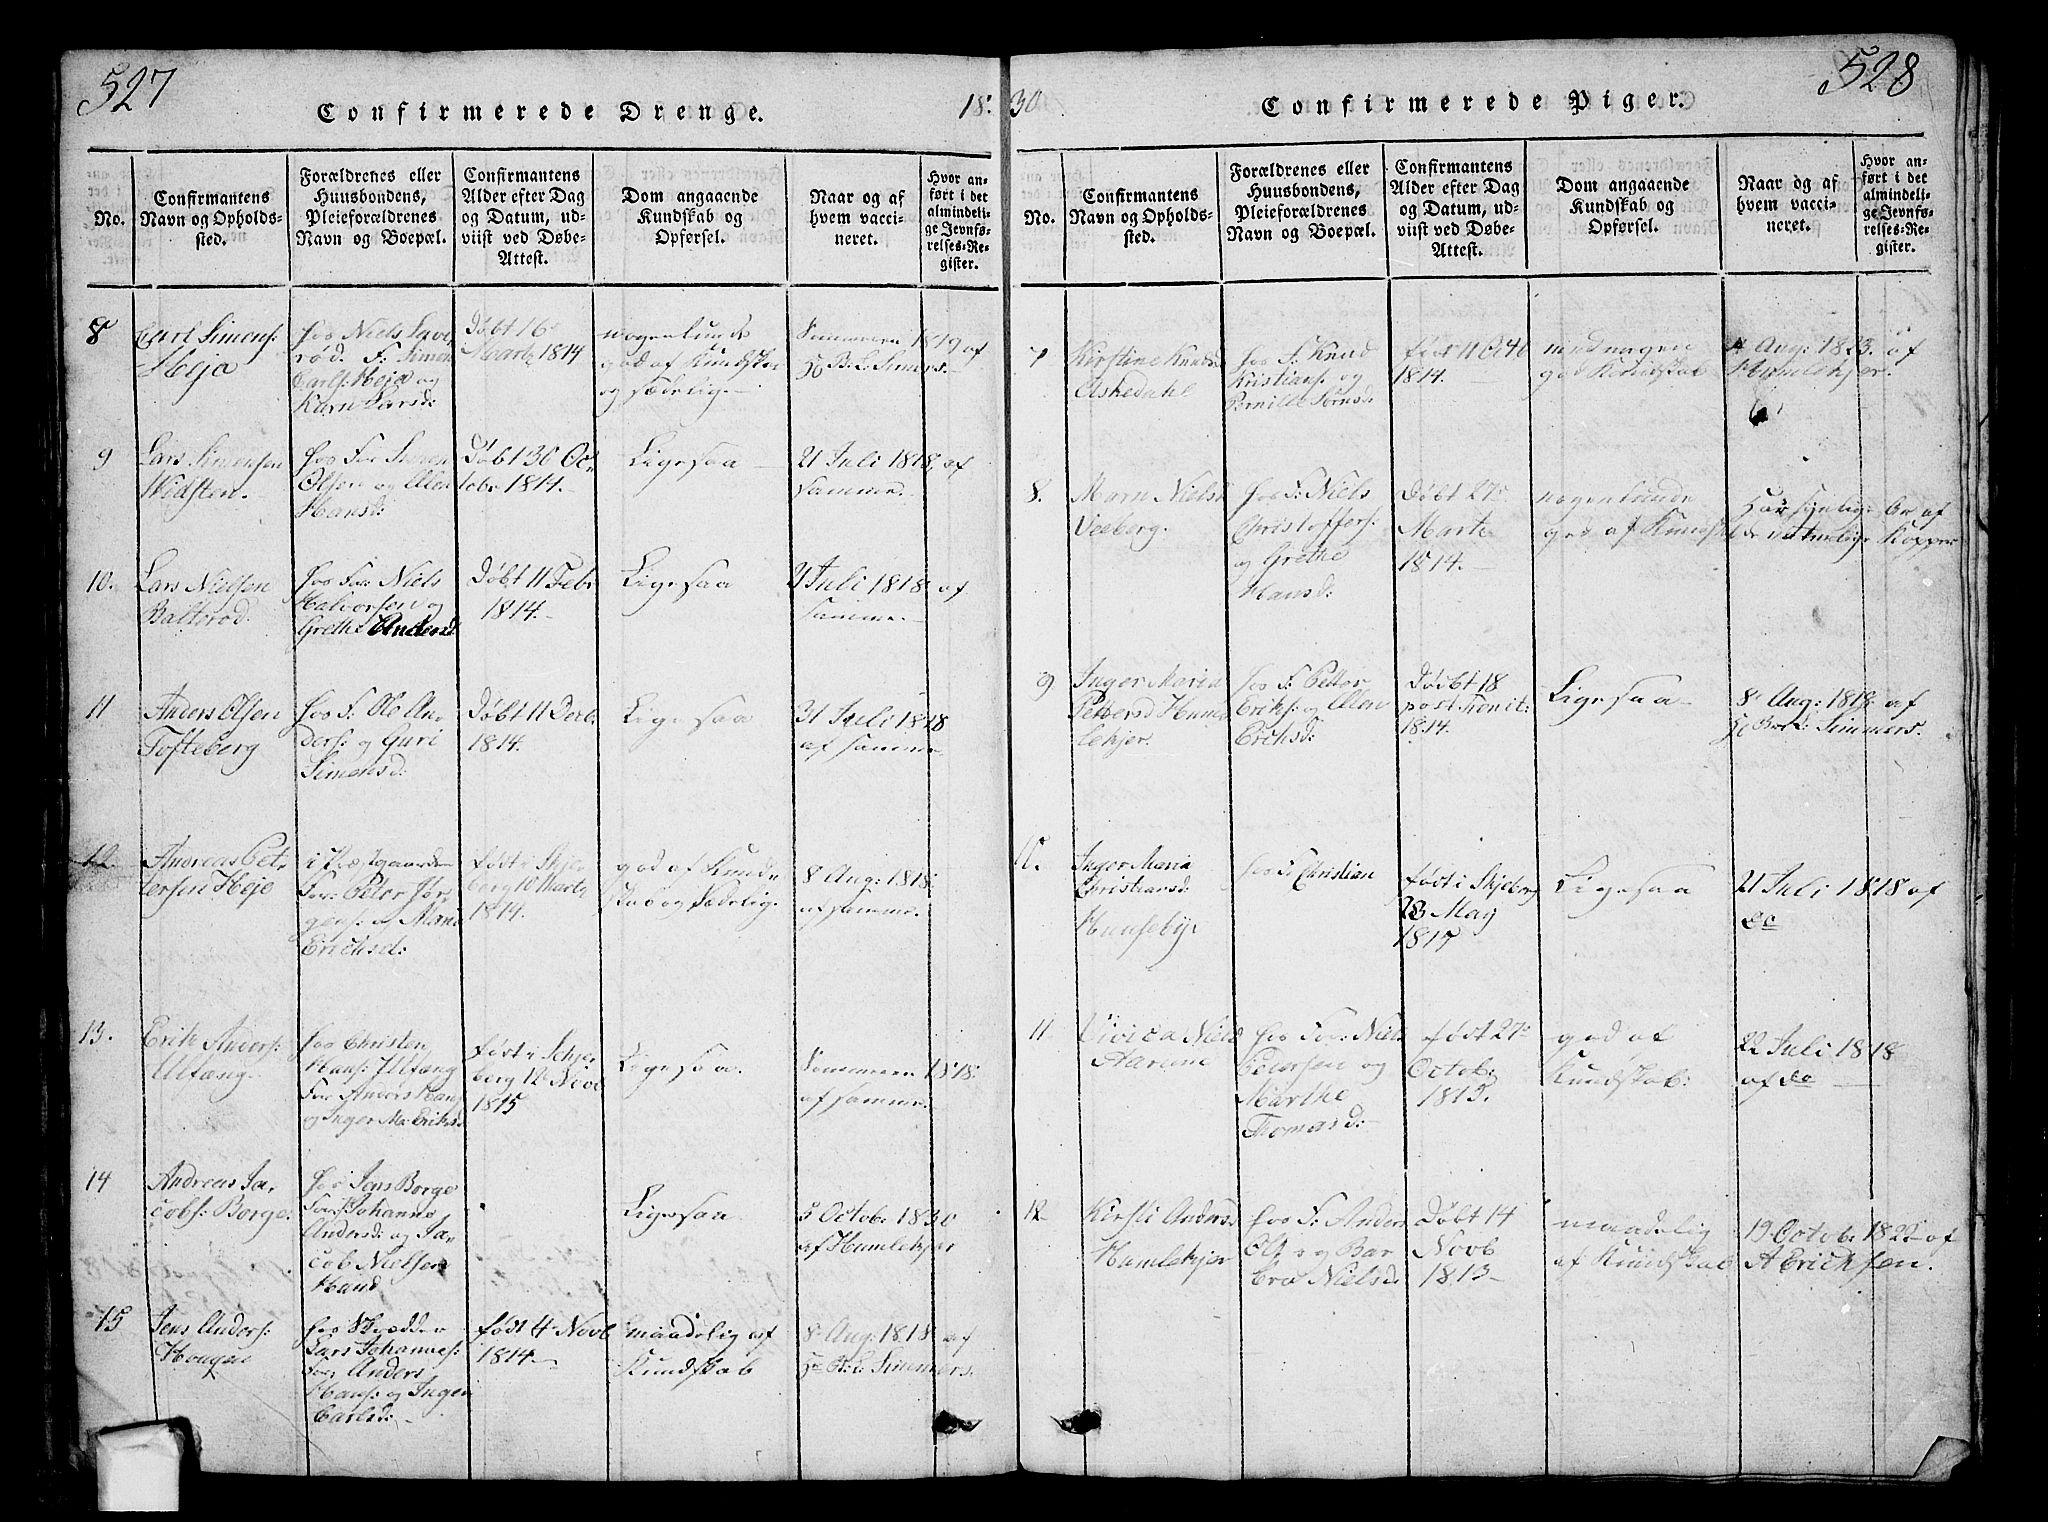 527
Confirmerede Drenge.
18
No.
Confirmantens
Navn og Opholds-
sted.
Forældrenes eller
Huusbondens,
Pleieforældrenes
Navn og Boepæl.
Confirmantens
Alder efter Dag
og Datum, ud-
viist ved Døbe-
Attest.
Dom angaaende
Kundskab og
Opførsel.
Naar og af
hvem vacci-
neret.
Hvor an-
ført i det
almindeli-
ge Jevnfø-
relses-Re-
gister.
8
Carl Simens:
Heja
hos Niels
rød. F: Simen
Carls: Heja og
Karn Larsd:
Døbt 16
Marts 1814
nogenlunde
god af Kundskab
og sædelig.
Sommeren 1819 af
B. L. Simers.
9
Lars Simensen
Vidsten.
hos For
Olsen og Ellen
Hansd:
Døbt 30 Oc-
tobr 1814.
Ligesaa
21 Juli 1818, af
samme.
10.
Lars Nielsen
Baltorød.
hos For: Niels
Halvorsen og
Grethe Andersd:
Døbt 11 Febr
1814.
Ligesaa
21 Juli 1818 af
samme.
11
Anders Olsen
Tofteberg
hos F: Ole An-
ders: og Guri
Simensd:
Døbt 11 Decbr
1814.
Ligesaa
31 Juli 1818
af samme
12
Andreas Pet-
tersen Heje
i Præstgaarden
For: Peter Jør-
gens: og Maria
Erichsd:
født i Skje-
berg 10 Marts
1814.
god af Kund-
skab og Sædelig.
8 Aug: 1818.
af samme.
13.
Erik Anders:
Ulfæng.
hos Christen
Hans: Ulfæng
For Anders Hans
og Inger Ma: Eriksd
født i Skje-
berg 12 Novb
1815
Ligesaa.
Sommeren 1818.
af samme.
14
Andreas Ja-
cobs: Borge.
hos Jens Borge
For: Johanne
Andersd: og Ja-
cob Nielsen
Haand
Ligesaa
5 Octob: 1830
af Humlekjær
15
Jens Anders:
Hougen
hos Skrædder
Lars Johannes:
For: Anders
Hans: og Inger
Carlsd:
født 4 Novb
1814
maadelig af
Kundskab
8 Aug: 1818 af
Simmers.
528
30
Confirmerede Piger.
No.
Confirmantens
Navn og Opholds-
sted.
Forældrenes eller
Huusbondens,
Pleieforældrenes
Navn og Boepæl.
Confirmantens
Alder efter Dag
og Datum, ud-
viist ved Døbe-
Attest.
Dom angaaende
Kundskab og
Opførsel.
Naar og af
hvem vacci-
neret.
Hvor an-
ført i det
almindeli-
ge Jevnfø-
relses-Re-
gister.
7
Kirstine Knudsd
Askedahl
hos F: Knud
Kristians: og
Pernille Sørensd:
født 11
1814.
med nogen
god Kundskab
Aug: 1823. af
Humlekjer.
8.
Marn Nielsd
Veeberg.
hos F: Niels
Christoffers:
og Grethe
Hansd:
Døbt 27
Marts
1814.
nogenlunde
god af Kundskab
Har synlige Ar af
de naturlige Kopper
9
Inger Maria
Pettersd Hum-
lekjer.
hos F: Petter
Eriks: og Ellen
Erichsd:
Døbt 18
post Trinit:
1814.
Ligesaa
8 Aug: 1818 af
Simmers.
10.
Inger Maria
Christiansd:
Hunsebye
hos F: Christian
født i Skjeberg
23 May
1815
Ligesaa
21 Juli 1818 af
do
11
Vivica Nielsd
Aarene
hos For: Niels
Petersen og
Marthe
Thomasd:
født 27
Octob:
1813.
god af
Kundskab:
22 Juli 1818
af do
12
Kirsti Andersd
Humlekjer
hos F: Anders
Ols: og Bar-
bra Nielsd:
Døbt 14
Novb
1813
maadelig
af Kundskab
19 Octob: 1822 af
A Erichsen.